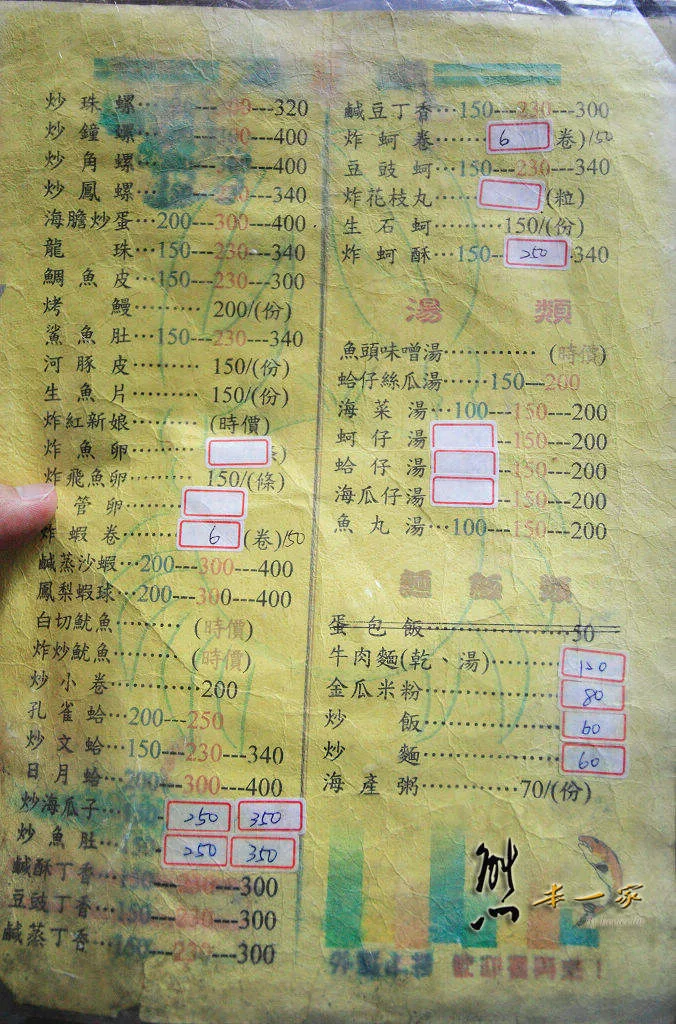 炒珠螺···---300---320
炒鐘螺···---300---400
炒角螺···---300---400
炒鳳螺···150---230---340
海膽炒蛋···200---300---400
龍珠···150---230---340
鯛魚皮···150---230---300
烤鰻········· 200/(份)
鯊魚肚···150---230---340
河豚皮········· 150/(份)
生魚片········· 150/(份)
炸紅新娘········· (時價)
炸魚卵·········
炸飛魚卵········ 150/(條)
管卵·······
炸蝦卷········ 6 (卷)150
鹹蒸沙蝦···200---300---400
鳳梨蝦球···200---300---400
白切魷魚········· (時價)
炸炒魷魚········ (時價)
炒小卷·········200
孔雀蛤···200---250
炒文蛤···150---230---340
日月蛤···200---300---400
炒海瓜子···150- 250 350
炒魚肚···150- 250 350
鹹酥丁香···150---230---300
豆豉丁香···150---230---300
鹹蒸丁香···150---230---300
鹹豆丁香···150---230---300
炸蚵卷··· 6 卷)150
豆豉蚵···150---230---340
炸花枝丸··· (粒)
生石蚵·········150/(份)
炸蚵酥···150-- 250 -340
湯類
魚頭味噌湯············ (時價)
蛤仔絲瓜湯······150---200
海菜湯···100---150---200
蚵仔湯 --150---200
蛤仔湯 --150---200
海瓜仔湯 --150---200
魚丸湯···100---150---200
麵飯類
蛋包飯··················50
牛肉麵(乾、湯)········ 120
金瓜米粉················· 80
炒飯················· 60
炒麵················· 60
海產粥············70/(份)
熊
半一家